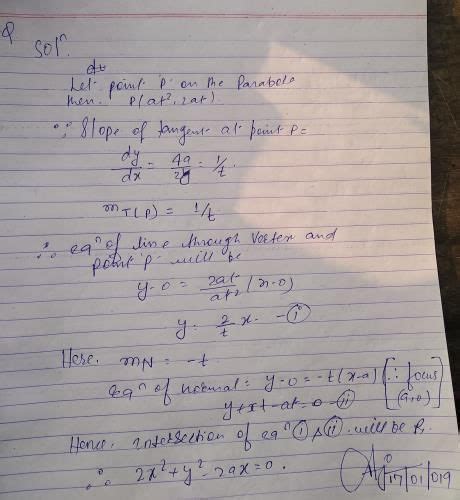 Q
Solⁿ.
Let point P on the Parabola
then P(at², 2at).
∵ Slope of tangent at point P =
dy/dx = 4a/2y = 1/t.
m_T(P) = 1/t.
∴ eqⁿ of line through vertex and
point P will be
y-0 = 2at/at² (x-0)
y = 2/t x. - (i)
Here. m_N = -t.
eqⁿ of normal = y-0 = -t(x-a) [∵ focus (a,0)]
y+xt-at=0 - (ii)
Hence. intersection of eqⁿ (i) & (ii) will be R.
∴ 2x²+y²-2ax=0.
17/01/019